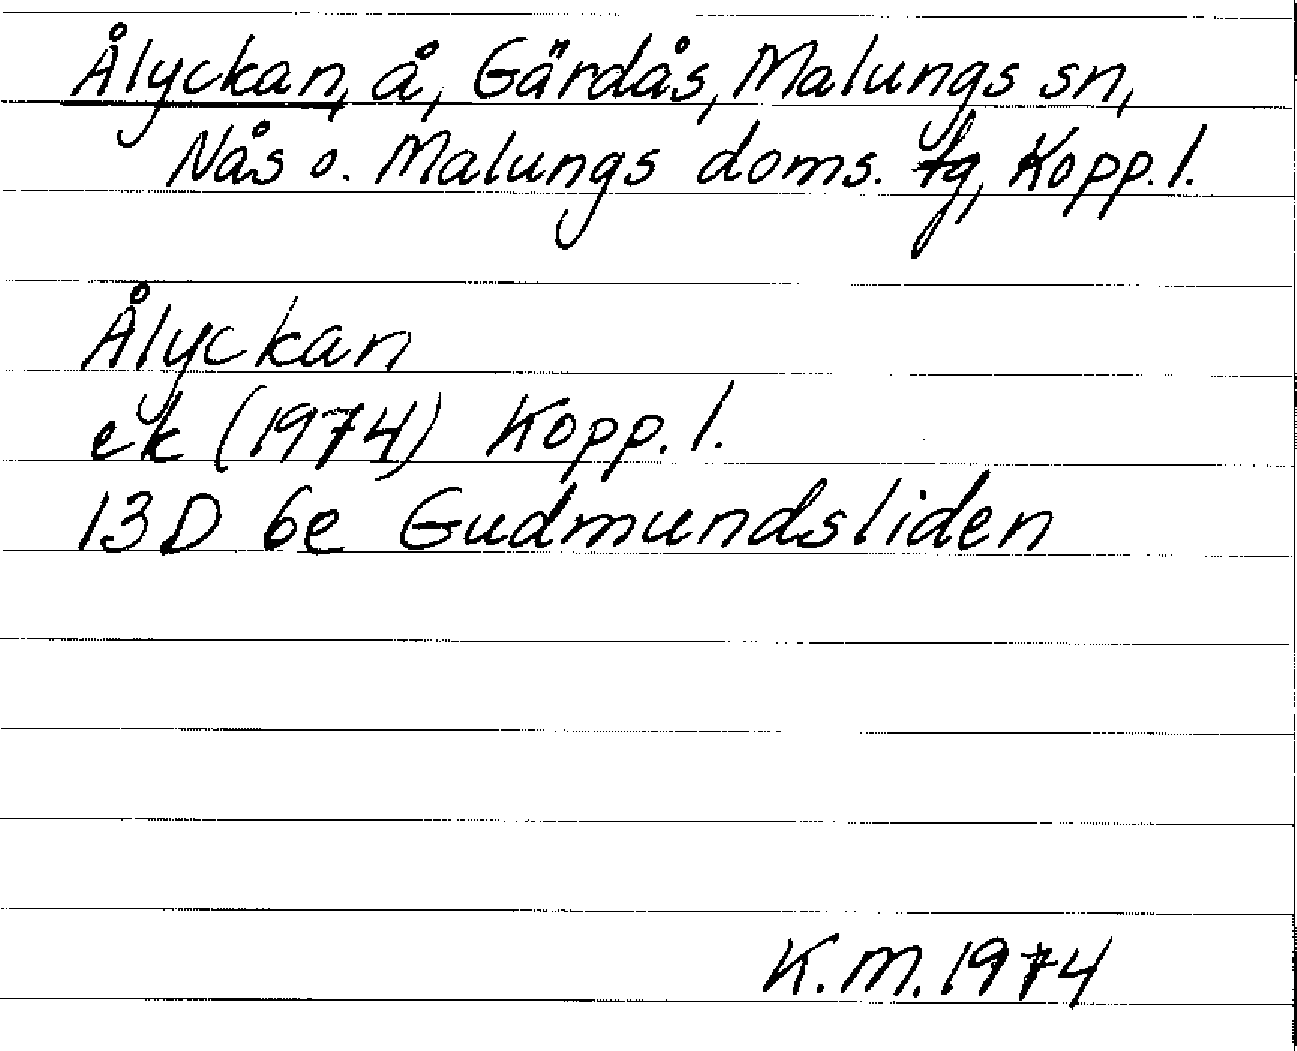 Ålyckan, å, Gärdås, Malungs sn,
Nås o. Malungs doms. tg, Kopp. l.
Ålyckan
ek (1974) Kopp. l.
13D 6e Gudmundsliden
K.M. 1974